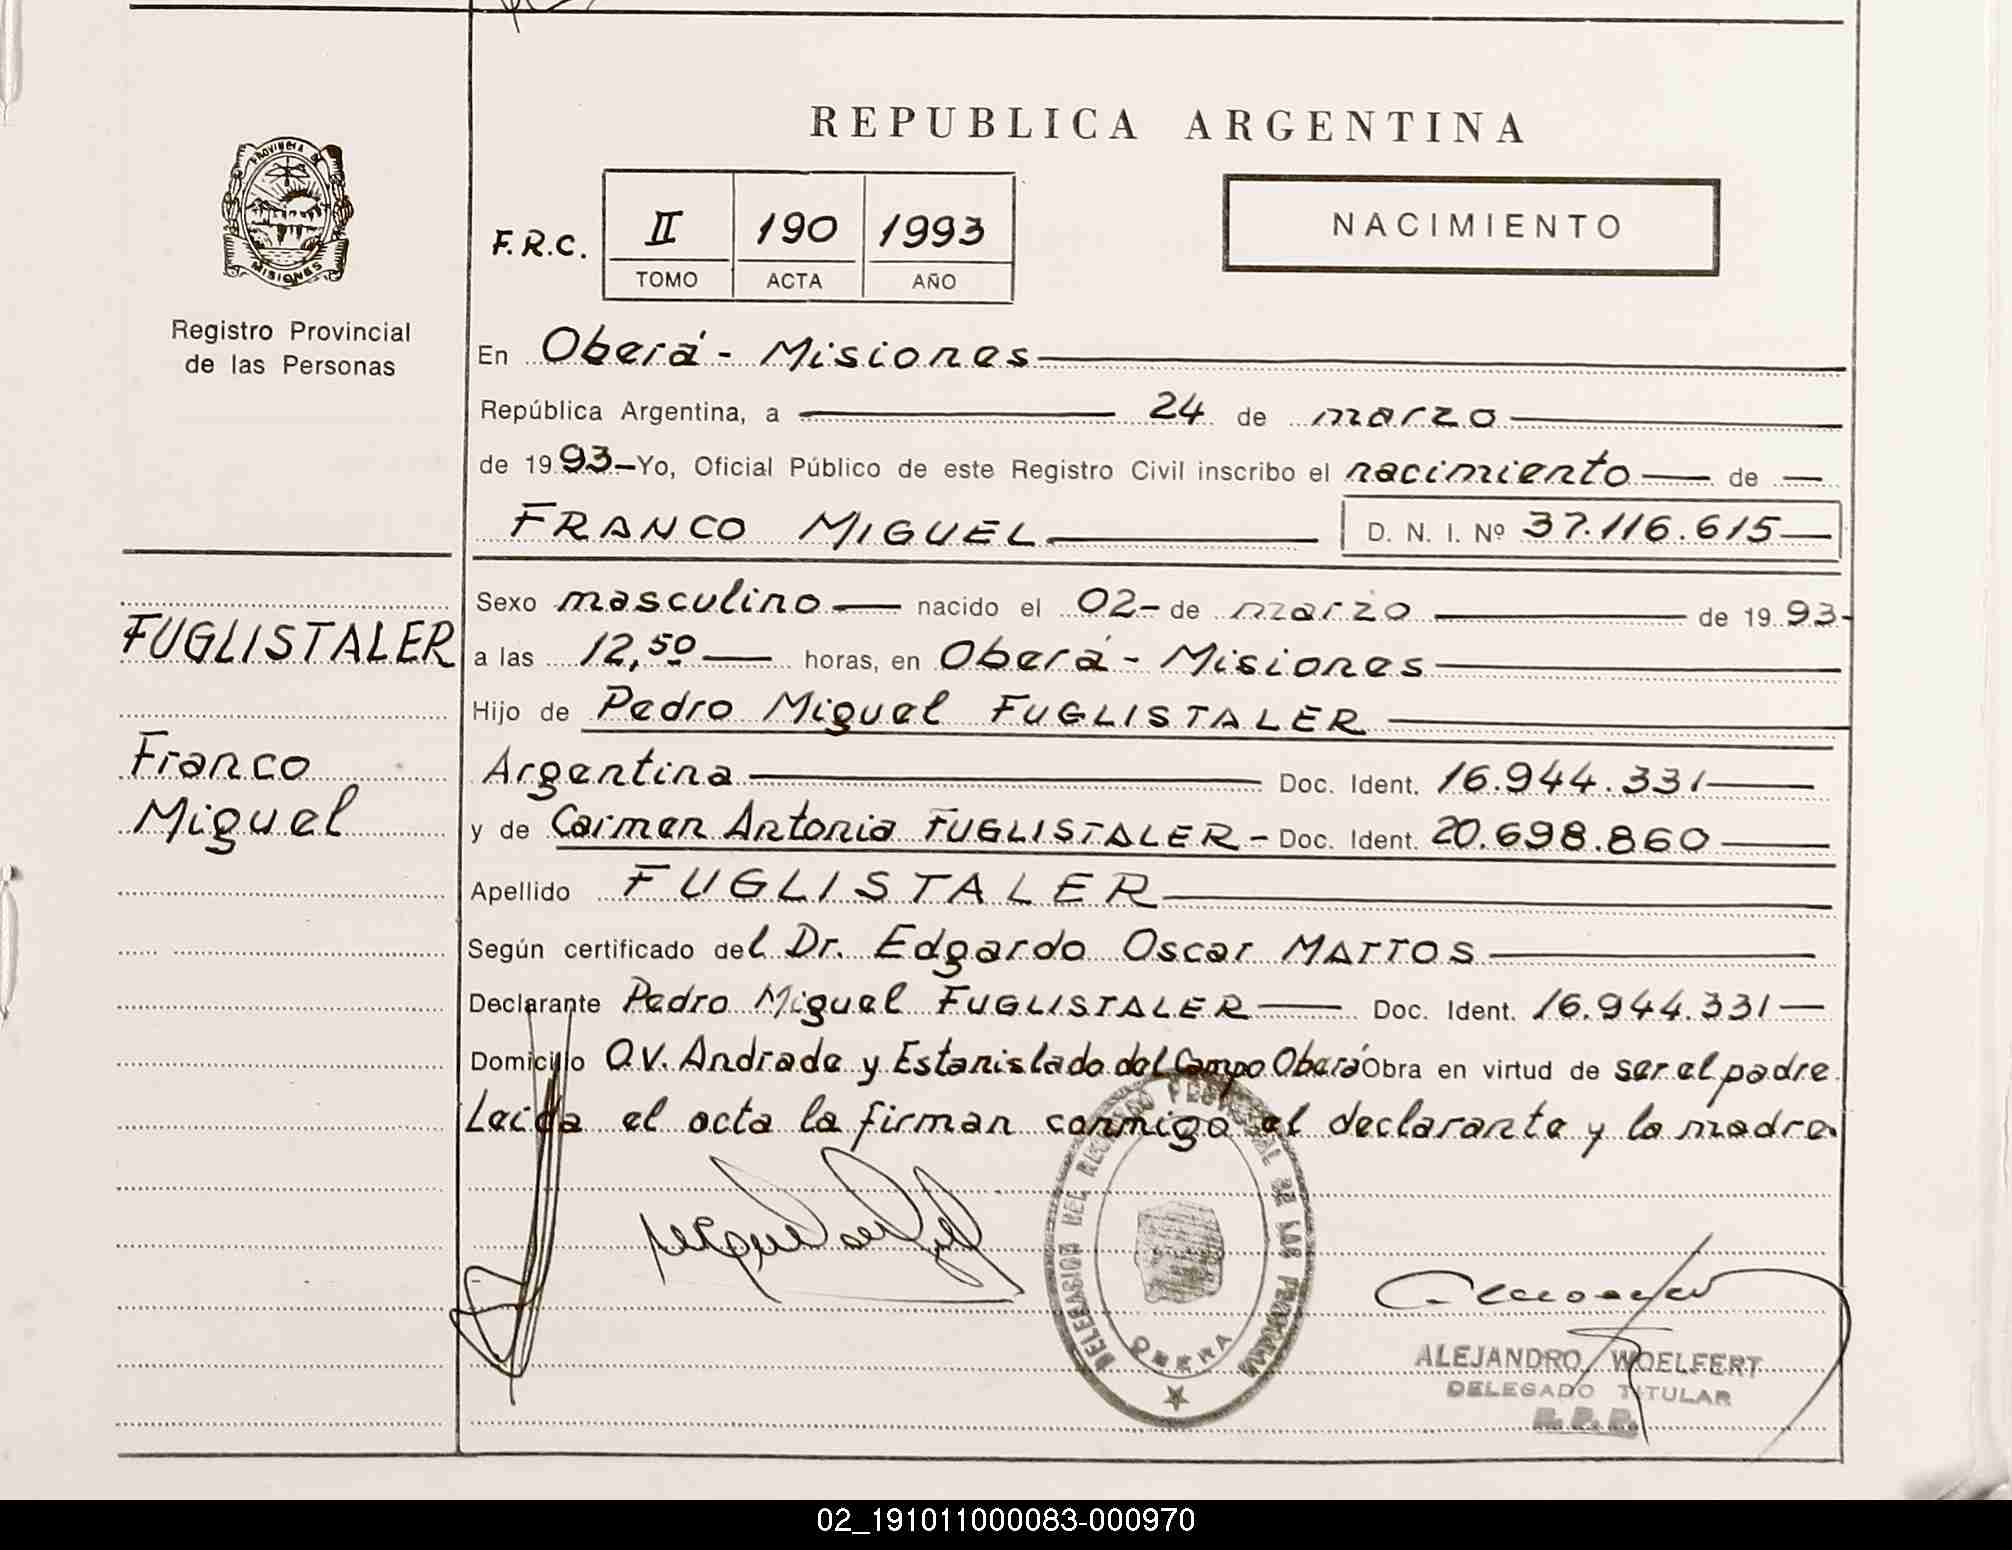 REPUBLICA ARGENTINA
PROVINCIA DE
MISIONES
Registro Provincial
de las Personas
F.R.C. II 190 1993
TOMO ACTA AÑO
NACIMIENTO
En Oberá - Misiones
República Argentina, a 24 de marzo
de 1993 Yo, Oficial Público de este Registro Civil inscribo el nacimiento de
FRANCO MIGUEL D. N. I. Nº 37.116.615
FUGLISTALER
Franco
Miguel
Sexo masculino nacido el 02 - de marzo de 1993
a las 12,50 horas, en Oberá - Misiones
Hijo de Pedro Miguel FUGLISTALER
Argentina Doc. Ident. 16.944.331
y de Carmen Antonia FUGLISTALER - Doc. Ident. 20.698.860
Apellido FUGLISTALER
Según certificado del Dr. Edgardo Oscar MATTOS
Declarante Pedro Miguel FUGLISTALER Doc. Ident. 16.944.331
Domicilio O.V. Andrade y Estanislado del Campo Oberá Obra en virtud de ser el padre.
Leída el acta la firman conmigo el declarante y la madre.
DELEGACION DEL REGISTRO PROVINCIAL DE LAS PERSONAS
OBERA
ALEJANDRO WOELFERT
DELEGADO TITULAR
R. P. P.
02_191011000083-000970